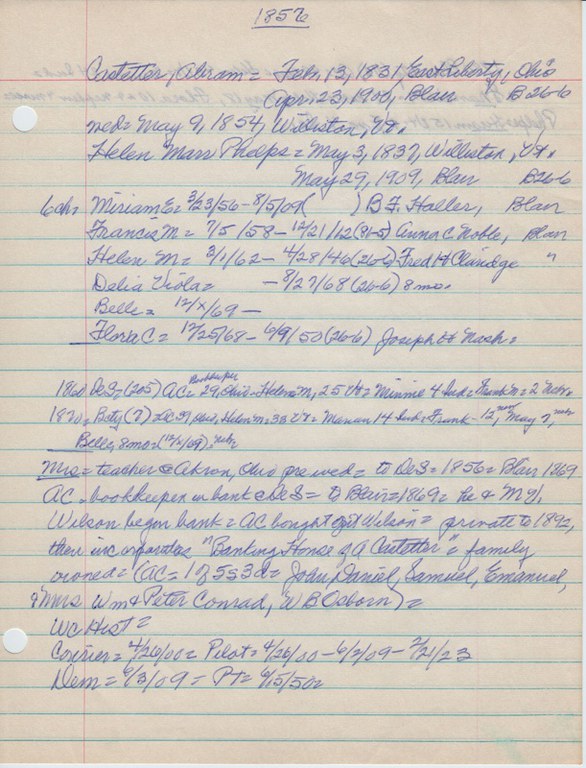 1856
Castetter, Abram = Feb, 13, 1831, East Liberty, Ohio
Apr, 23, 1900, Blair B26-6
med = May 9, 1854, Williston, Vt.
Helen Marr Phelps = May 3, 1837, Williston, Vt.
May 29, 1909, Blair B26-6
6 ch = Miriam E = 3/23/56 - 8/5/09 ( ) B F. Haller, Blair
Francis M = 7/5/58 - 12/21/12 (81-5) Anna C Noble, Blair
Helen M = 3/1/62 - 4/28/46 (26-6) Fred H Claridge "
Delia Viola = - 8/27/68 (26-6) 8 mo.
Belle = 12/x/69 -
Flora C = 12/25/68 - 6/9/50 (26-6) Joseph H Nash =
Bookkeeper
1860 DeS = (205) AC = 29, Ohio = Helen M, 25 Vt = Minnie 4 Ind = Frank M = 2 Nebr =
1870 = (7) AC 39, Ohio, Helen M = 33 Vt = 14 Ind = Frank - 12, May 7, Nebr
Belle, 8 mo = (12/x/69) = Nebr
Mrs = teacher @ Akron, Ohio pre wed = to DeS = 1856 = Blair 1869
AC = bookkeeper in bank @ DeS = to Blair = 1869 = he &
Wilson began bank = AC bought out Wilson = private to 1892,
then incorporates "Banking House of A Castetter" = family
owned = (AC = 1 of 5s 3d = John, Daniel, Samuel, Emanuel,
& Mrs Wm & Peter Conrad, W B Osborn) =
WC Hist =
Courier = 4/26/00 = Pilot = 4/26/00 - 6/2/09 - 2/21/23
Dem = 6/3/09 = PT = 6/15/50 =